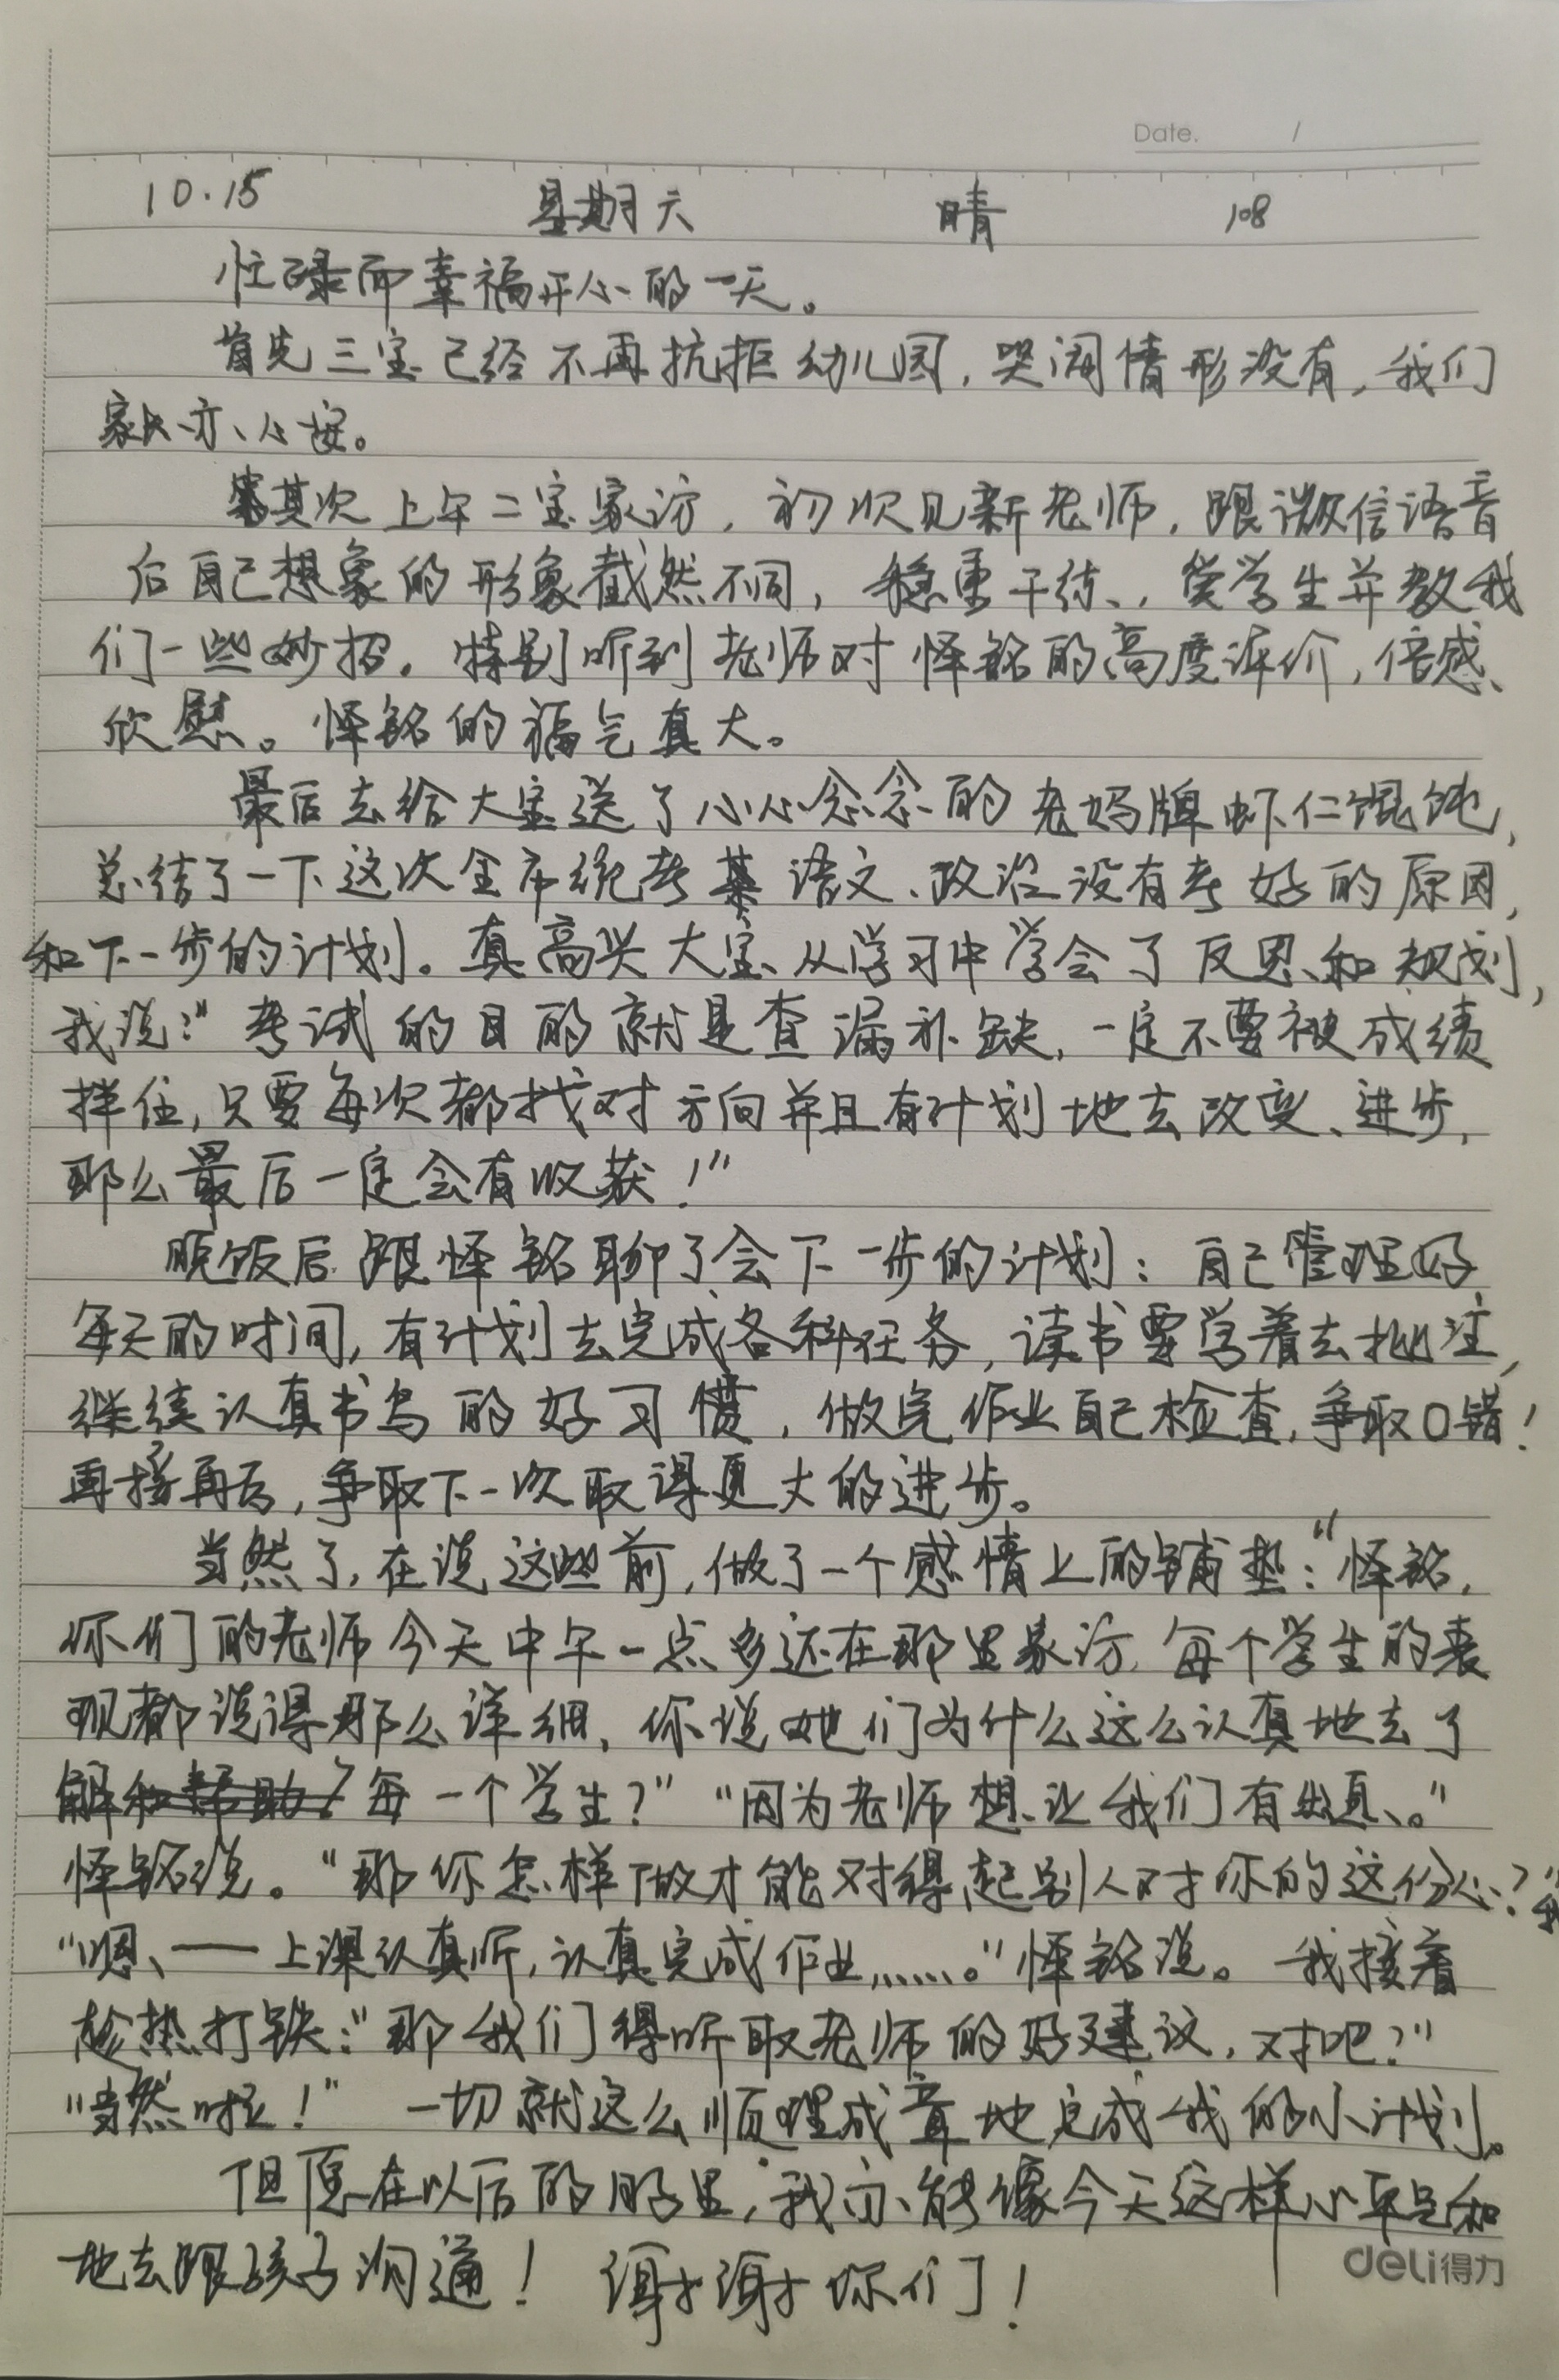 Date. /
10.15 星期六 晴 108
忙碌而幸福开心的一天。
首先三宝已经不再抗拒幼儿园，哭闹情形没有，我们
家长亦心安。
其次上午二宝家访，初次见新老师，跟微信语音
后自己想象的形象截然不同，稳重干练、，赞学生并教我
们一些妙招。特别听到老师对怿铭的高度评价，倍感
欣慰。怿铭的福气真大。
最后去给大宝送了心心念念的老妈牌虾仁馄饨，
总结了一下这次全市统考语文、政治没有考好的原因，
和下一步的计划。真高兴大宝从学习中学会了反思和规划，
我说：“考试的目的就是查漏补缺，一定不要被成绩
绊住，只要每次都找对方向并且有计划地去改变、进步，
那么最后一定会有收获！”
晚饭后跟怿铭聊了会下一步的计划：自己管理好
每天的时间，有计划去完成各科任务，读书要学着去批注，
继续认真书写的好习惯，做完作业自己检查，争取0错！
再接再厉，争取下一次取得更大的进步。
当然了，在说这些前，做了一个感情上的铺垫：“怿铭，
你们的老师今天中午一点多还在那里家访，每个学生的表
现都说得那么详细，你说她们为什么这么认真地去了
解和帮助？每一个学生？”“因为老师想让我们有出息。”
怿铭说。“那你怎样做才能对得起别人对你的这份心？”我
“嗯、——上课认真听，认真完成作业……。”怿铭说。我接着
趁热打铁：“那我们得听取老师的好建议，对吧？”
“当然啦！”一切就这么顺理成章地完成我的小计划。
但愿在以后的日子里，我亦能像今天这样心平气和
地去跟孩子沟通！谢谢你们！
deli得力